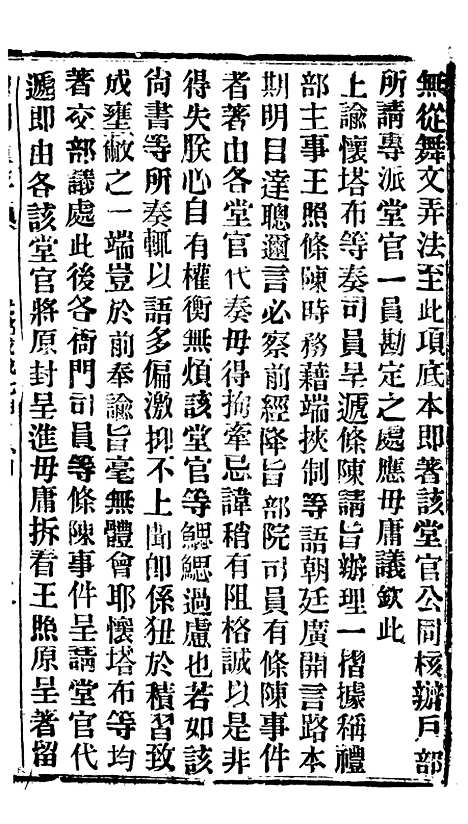 無從舞文弄法至此項底本即著該堂官公同核辦戶部
所請專派堂官一員勘定之處應毋庸議欽此
上諭懷塔布等奏司員呈遞條陳請旨辦理一摺據稱禮
部主事王照條陳時務藉端挾制等語朝廷廣開言路本
期明目達聰邇言必察前經降旨部院司員有條陳事件
者著由各堂官代奏毋得拘牽忌諱稍有阻格誠以是非
得失朕心自有權衡無煩該堂官等鰓鰓過慮也若如該
尚書等所奏輒以語多偏激抑不上聞卽係狃於積習致
成壅蔽之一端豈於前奉諭旨毫無體會耶懷塔布等均
著交部議處此後各衙門司員等條陳事件呈請堂官代
遞即由各該堂官將原封呈進毋庸拆看王照原呈著留